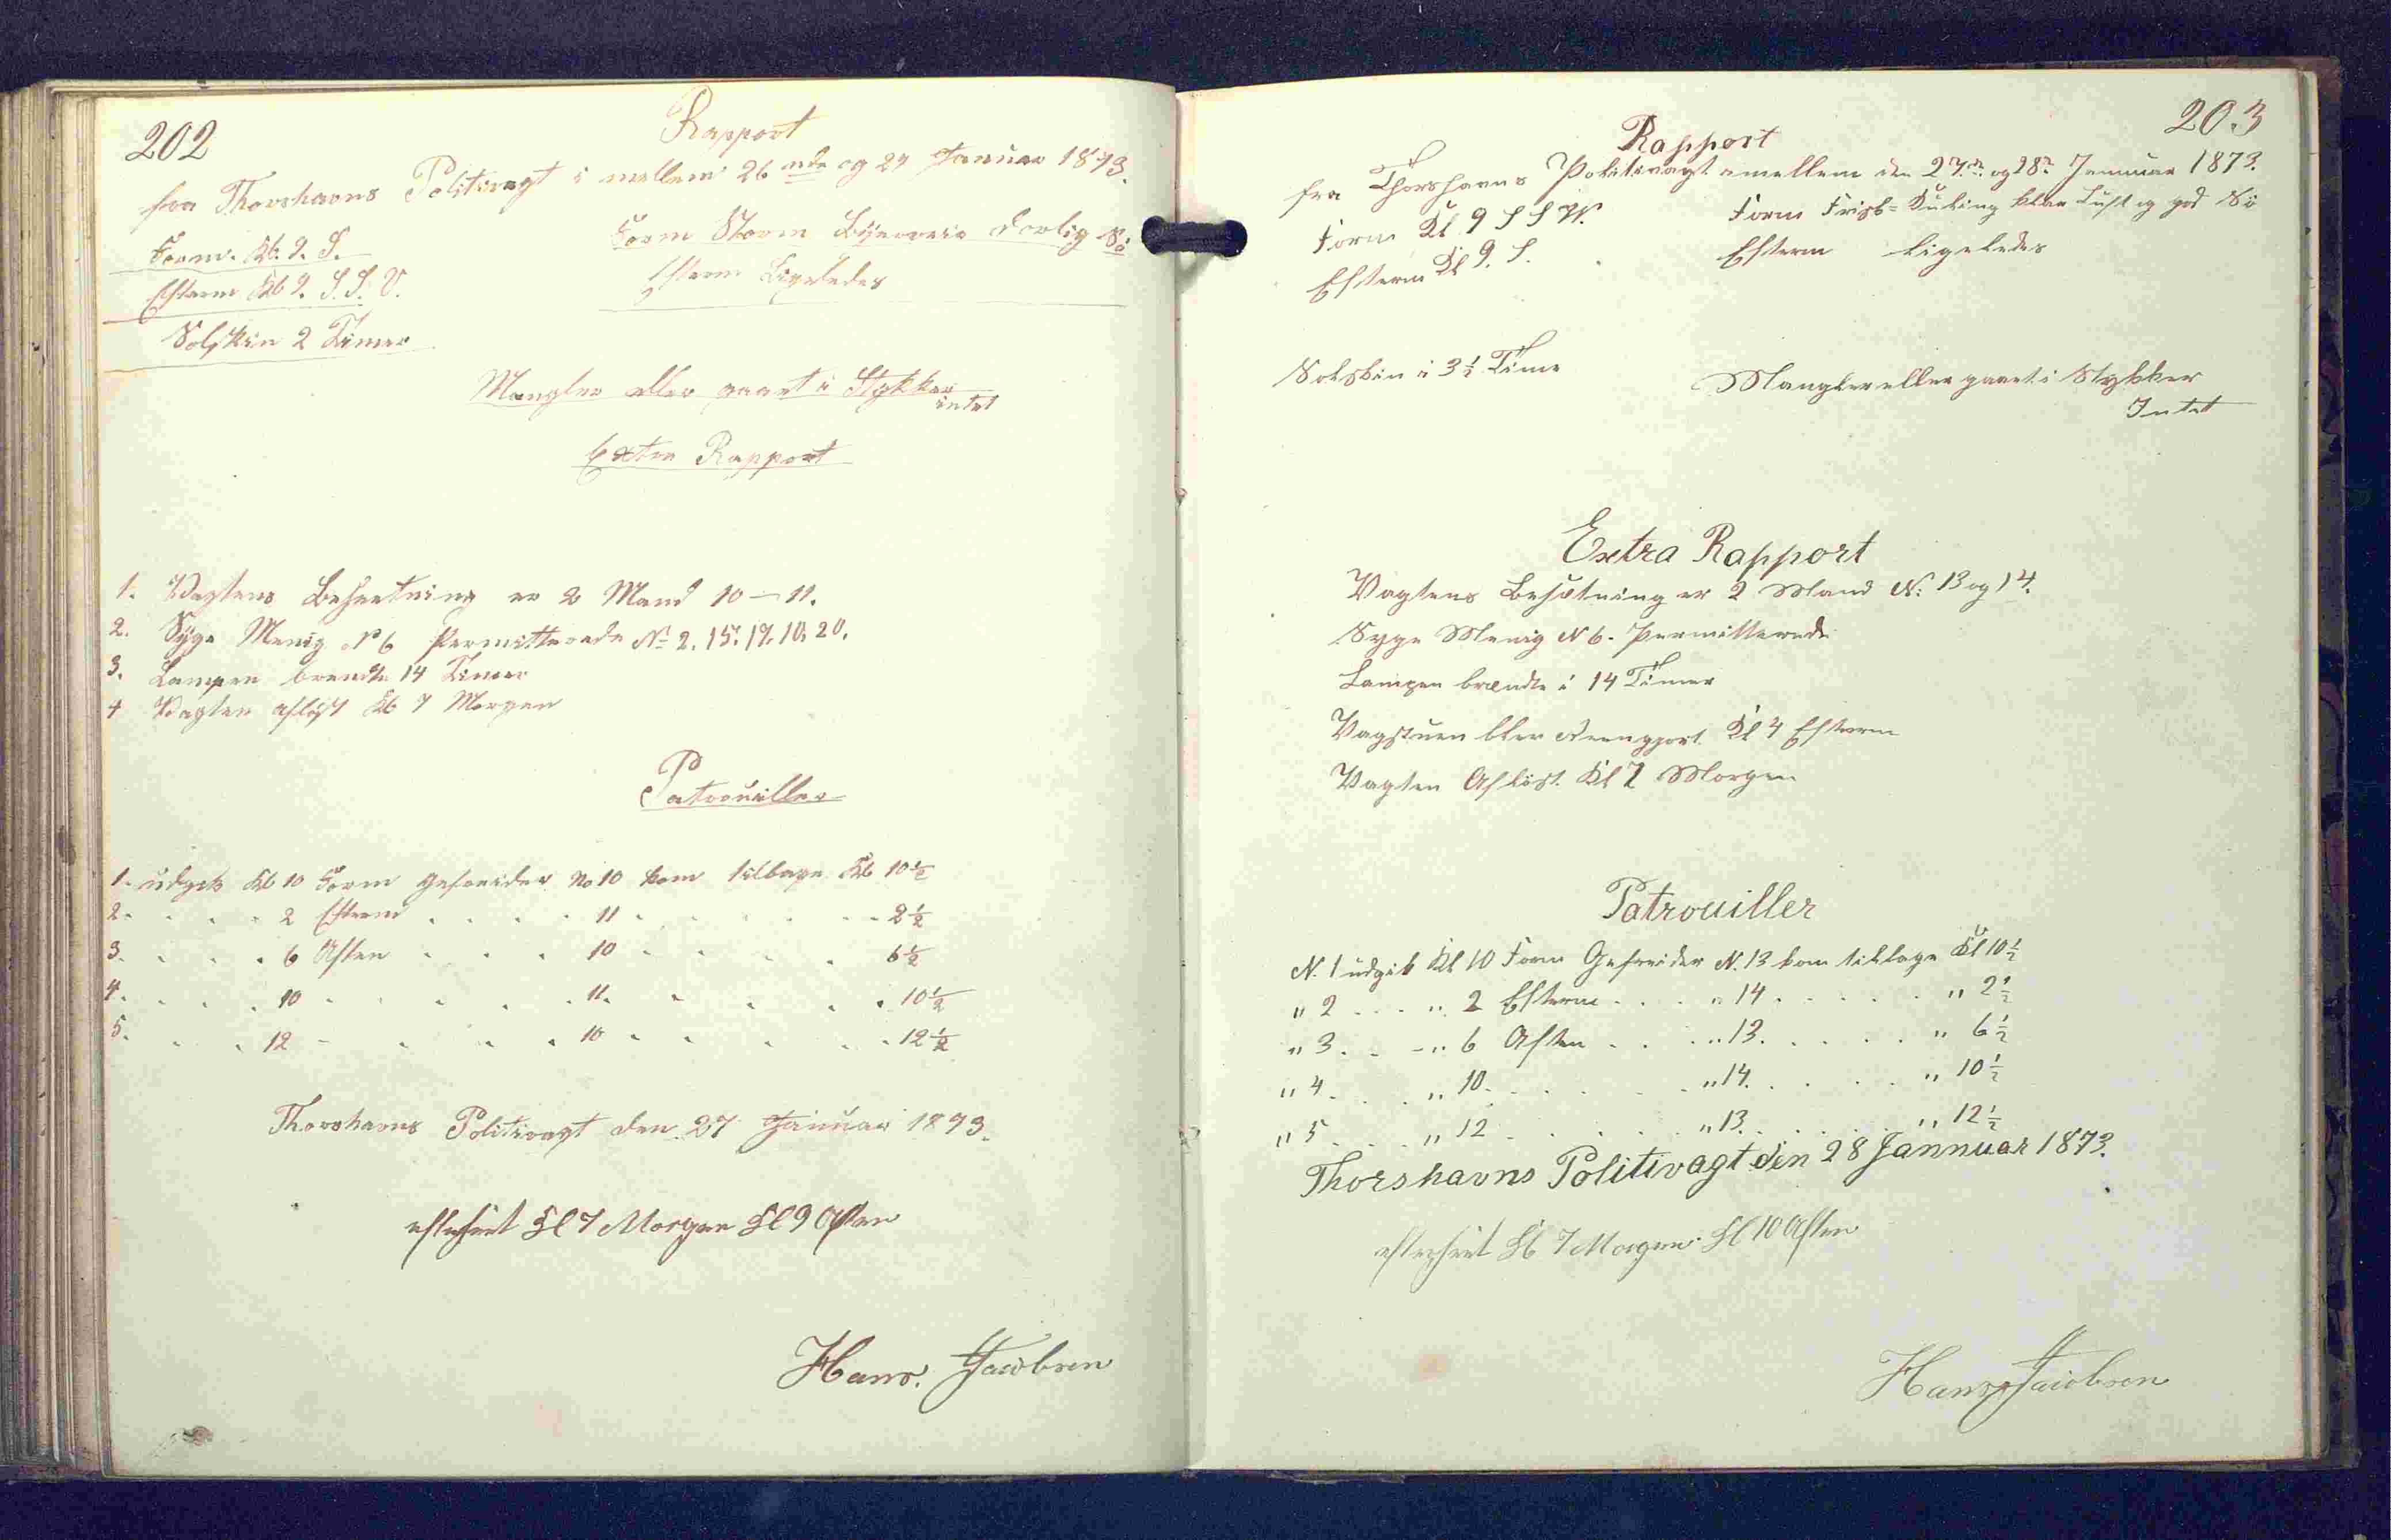 202
Rapport
fra Thorshavns Politivagt i mellem 26 nde og 27 Januar 1873.
Form. Kl. 9. S.
Form Storm Bÿeveir Dorlig Sö
Efterm Kl 9. S. S. V.
Efterm Ligeledes
Solskin 2 Timer
Mangler eller gaaet i Stykker
intet
Extra Rapport
1. Vagtens Besætning er 2 Mand 10 – 11.
2. Syge Menig N 6 Permitterede No 2. 15. 17. 18. 20.
3. Lampen brendte 14 Timer
4 Vagten afløst Kl 7 Morgen
Patrouiller
1. udgik Kl 10 Form Gefreider No 10 kom tilbage Kl 10 1/2
2. . . . 2 Efterm . . . . 11 . . . . . 2 1/2
3. . . . 6 Aften . . . 10 . . . . . 6 1/2
4. . . . 10 . . . . . 11. . . . . 10 1/2
5. . . 12 . . . . 10 . . . . . 12 1/2
Thorshavns Politivagt den 27 Januar 1873.
efterseet Kl 7 Morgen Kl 9 Aften
Hans. Jacobsen
203
Rapport
fra Thorshavns Politivagt emellem den 27.n og 28n Januuar 1873.
Form Kl 9 S S W.
Form Frisk=Kuling klar Luft og god Sö
Efterm Kl 9. S.
Efterm Ligeledes
Solskin i 3 1/2 Time
Mangler eller gaaet i Stykker
Intet
Extra Rapport
Vagtens Besætning er 2 Mand N: 13 og 14.
Syge Menig N 6. Permitterede
Lampen brændte i 14 Timer
Vagstuen blev Reengjort Kl 4 Efterm
Vagten Aflöst. Kl 7 Morgen
Patrouiller
N. 1 udgik Kl 10 Form Gefreider N. 13 kom tilbage Kl 10 1/2
" 2 . . . " 2 Efterm . . . " 14 . . . . . " 2 1/2
" 3. . . " 6 Aften . . . " 13. . . . . " 6 1/2
" 4. . . " 10. . . . . . " 14. . . . . " 10 1/2
" 5 . . . " 12 . . . . . " 13. . . . . " 12 1/2
Thorshavns Politivagt den 28 Jannuar 1873.
efterseet Kl 7 Morgen Kl 10 Aften
Hans Jacobsen